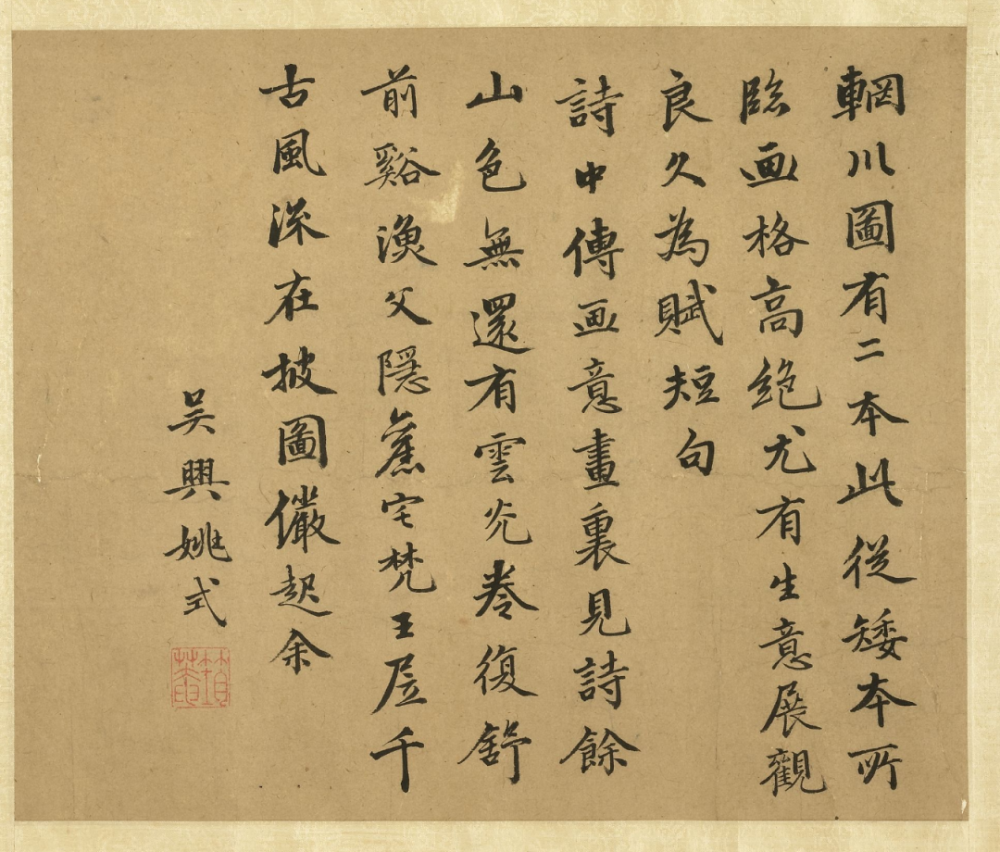 輞川圖有二本此從矮本所
臨画格高絶尤有生意展觀
良久為賦短句
詩中傳画意畫裏見詩餘
山色無還有雲光卷復舒
前谿漁父隱舊宅梵王居千
古風流在披圖儼起余
吳興姚式